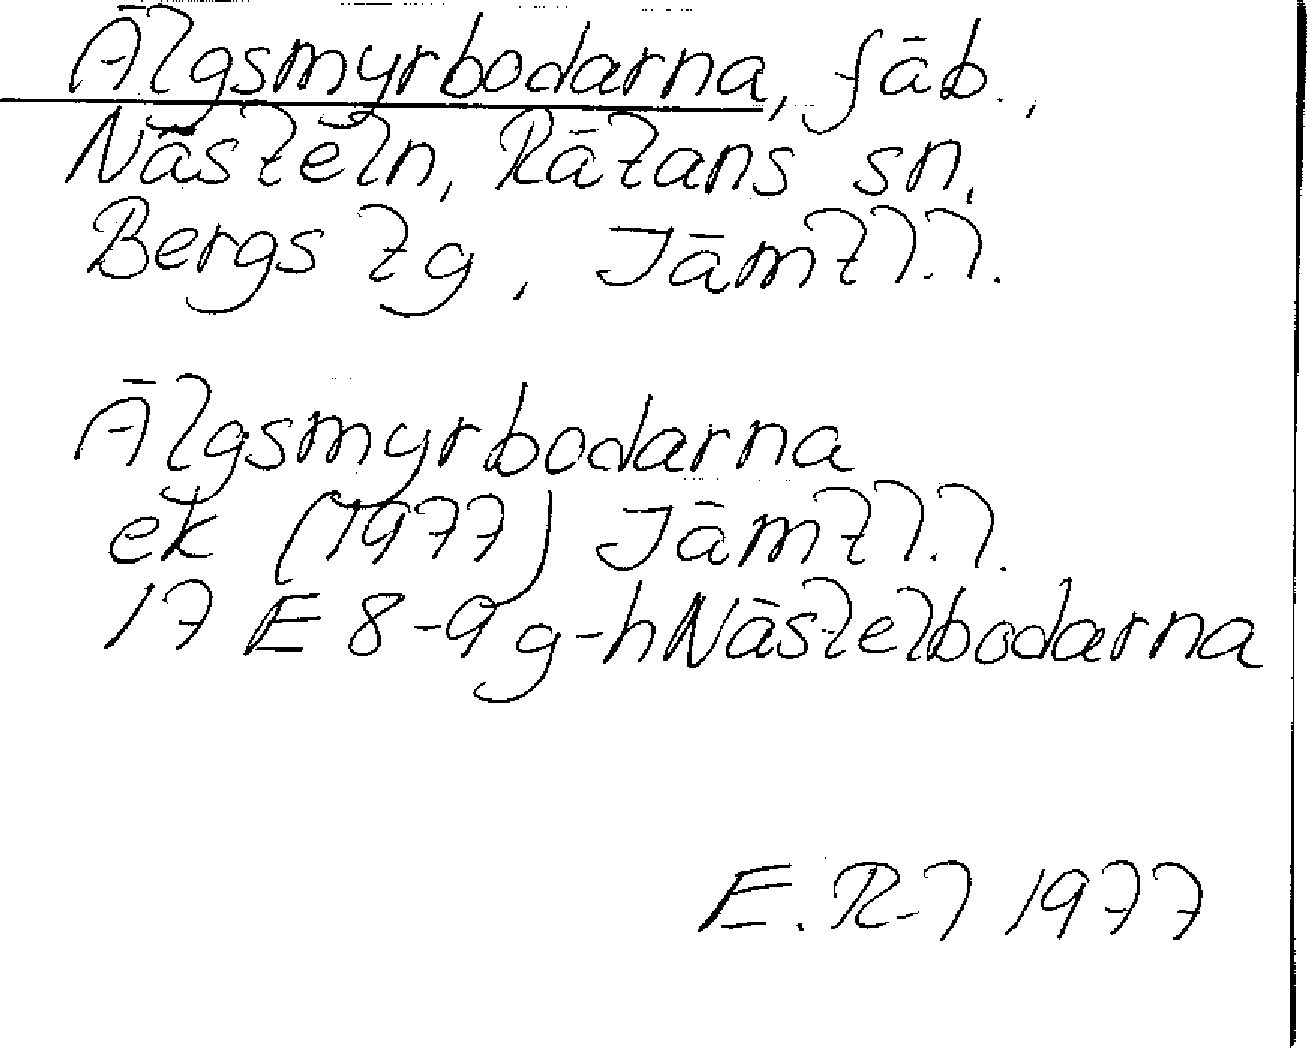 Älgsmyrbodarna, fäb.,
Nästeln, Rätans sn,
Bergs tg, Jämtl.l.
Älgsmyrbodarna
ek (1977) Jämtl.l.
17 E 8-9 g-h Nästelbodarna
E. R-l 1977